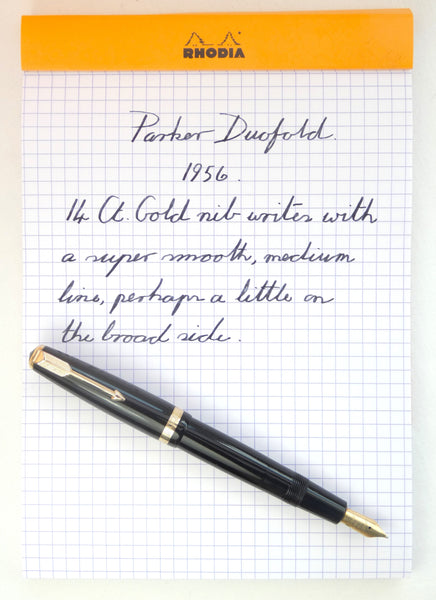 RHODIA
Parker Duofold.
1956.
14 Ct. Gold nib writes with
a super smooth, medium
line, perhaps a little on
the broad side.